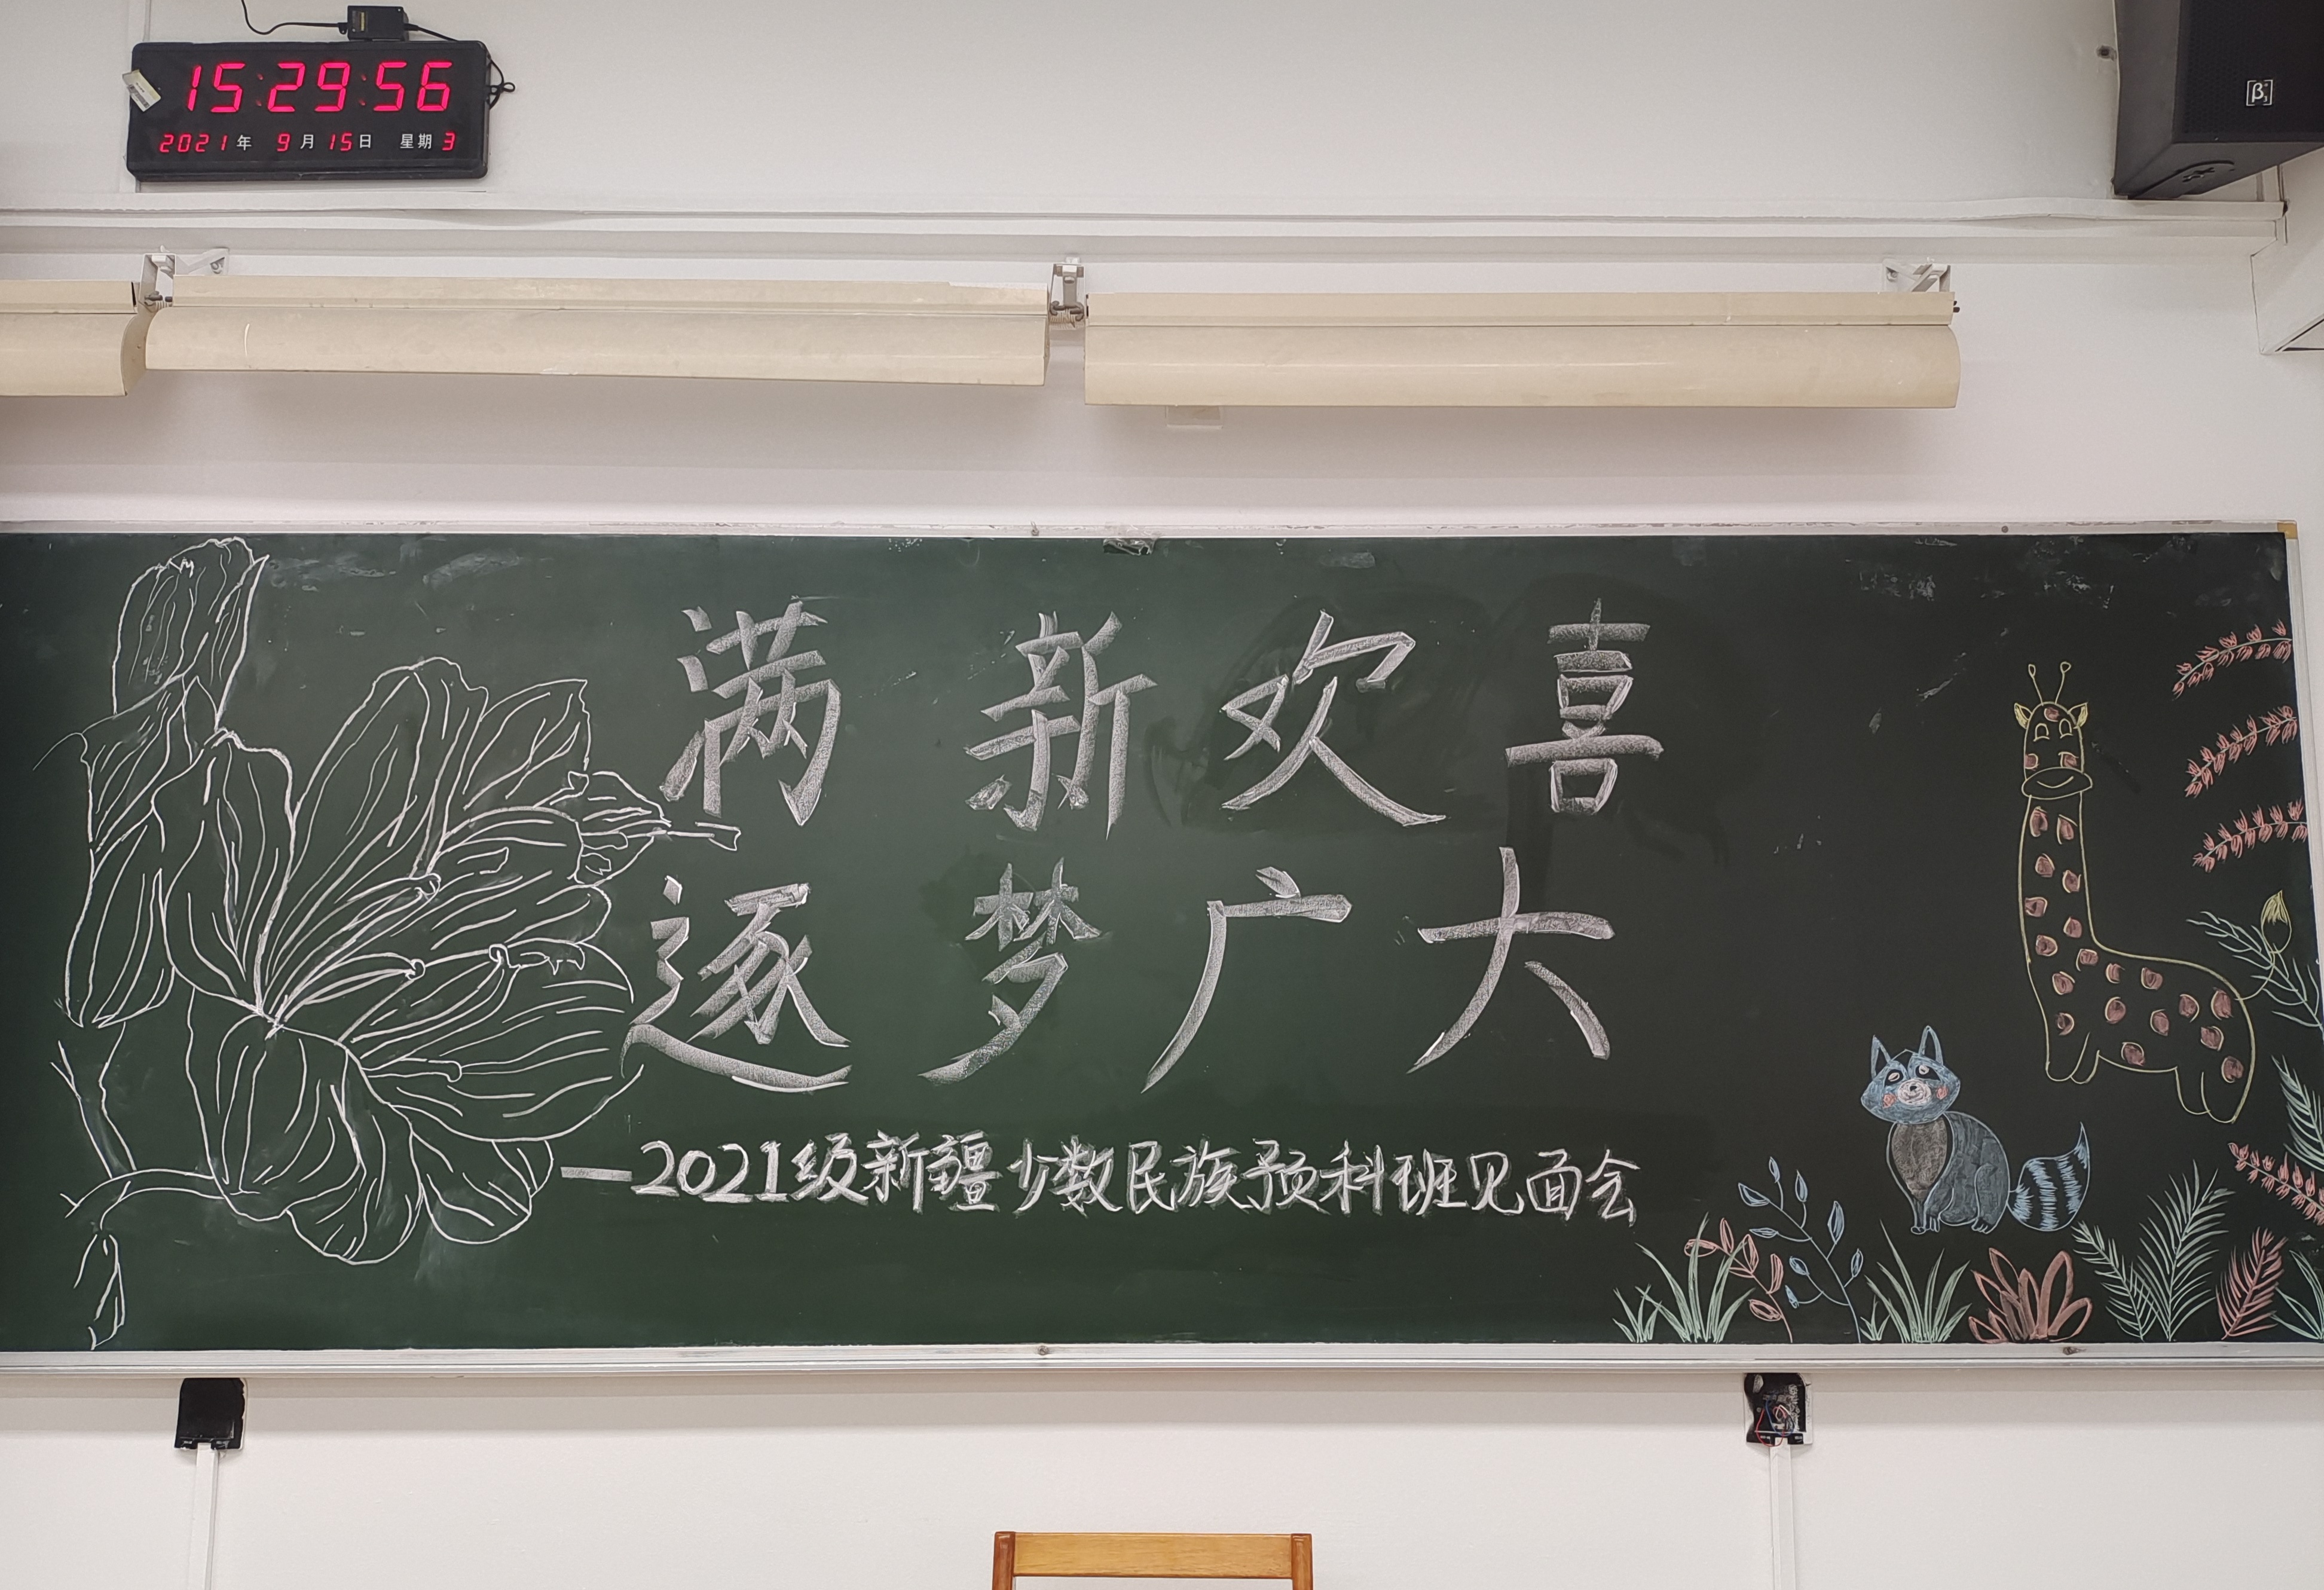 15:29:56
2021年 9月15日 星期3
满新欢喜
逐梦广大
—2021级新疆少数民族预科班见面会